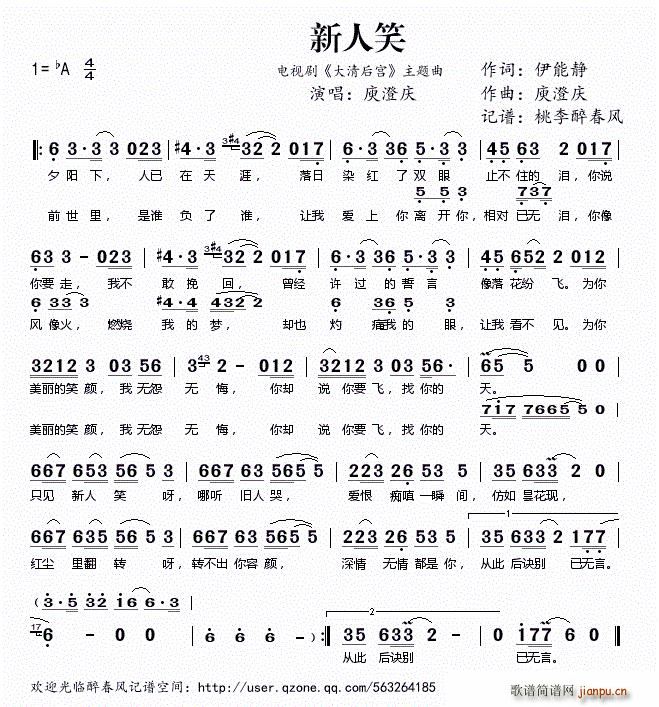 新人笑
1=♭A 4/4
电视剧《大清后宫》主题曲
作词：伊能静
演唱：庾澄庆
作曲：庾澄庆
记谱：桃李醉春风
6 3·3 3 023 | #4·3 3#4 32 2 017 | 6·3 36 5·3 3 | 45 63 2 017 |
夕阳下，人已 在天涯，落日 染红了双眼 止不住的泪，你说
5 5 3 737
前世里，是谁 负了谁，让我 爱上你离开你，相对已无泪，你像
63 3 - 023 | #4·3 3#4 32 2 017 | 6·3 36 5·3 3 | 45 652 2 012 |
你要走，我不 敢挽回，曾经 许过的誓言 像落花纷飞。为你
6 33 3 #4·4 432 2 3 6 5 3
风像火，燃烧 我的梦，却也 灼痛我的眼，让我看不见。为你
3212 3 03 56 | 3 43 2 - 012 | 3212 3 03 56· | 65 5 0 0 |
美丽的笑颜，我无怨 无悔，你却 说你要飞，找你的 天。
717 7665 5 0
美丽的笑颜，我无怨 无悔，你却 说你要飞，找你的 天。
667 653 56 5 3 | 667 63 565 5 | 223 26 53 5 | 35 633 2 - |
只见 新人 笑 呀，哪听 旧人哭， 爱恨 痴嗔一瞬间，仿如昙花现，
667 653 56 5 3 | 667 63 565 5 | 223 26 53 5 | 35 633 2 177 |
1
红尘 里翻 转 呀，转不出你容颜， 深情 无情都是你，从此后诀别 已无言。
(3·5 32 16 6·3 |
17 6 - 0 0 | 6 6 6 - ) :| 35 633 2 - | 0 177 6 0 ||
2
从此 后诀别 已无言。
欢迎光临醉春风记谱空间：http://user.qzone.qq.com/563264185
歌谱简谱网
jianpu.cn